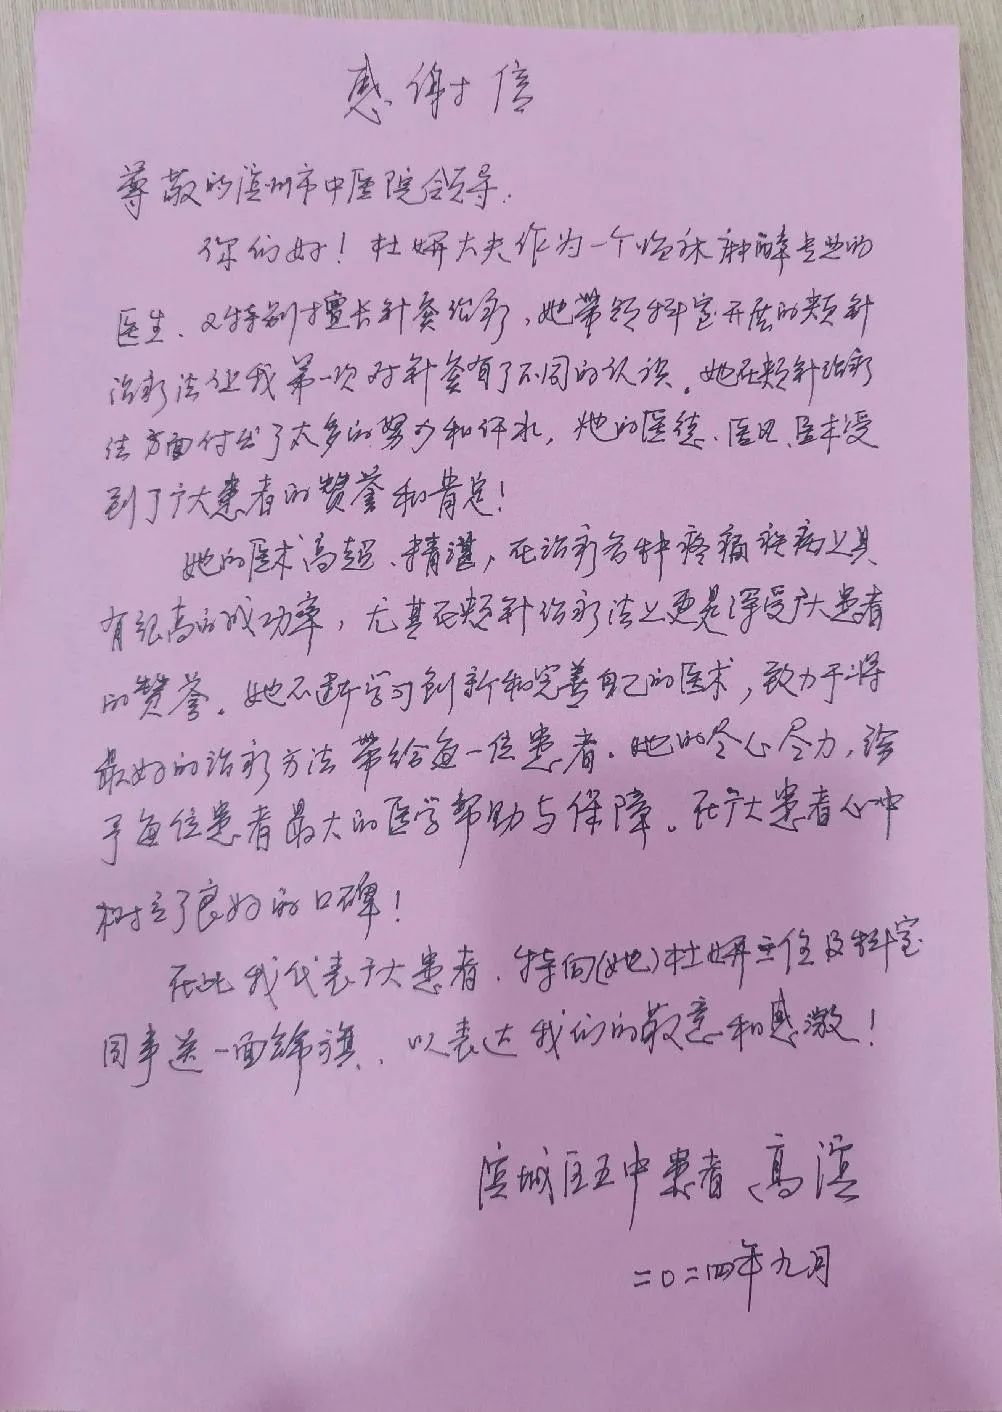 感谢信
尊敬的滨州市中医院领导.
你们好！杜妍大夫作为一个临床麻醉专业的
医生、又特别擅长针灸治疗，她带领科室开展的颊针
治疗法让我第一次对针灸有了不同的认识。她在颊针治疗
法方面付出了太多的努力和汗水，她的医德、医风、医术受
到了广大患者的赞誉和肯定！
她的医术高超、精湛，在治疗各种疼痛疾病上具
有很高的成功率，尤其在颊针治疗法上更是深受广大患者
的赞誉。她不断学习创新和完善自己的医术，致力于将
最好的治疗方法带给每一位患者。她的尽心尽力，给
予每位患者最大的医学帮助与保障。在广大患者心中
树立了良好的口碑！
在此我代表广大患者、特向(她)杜妍主任及科室
同事送一面锦旗、以表达我们的敬意和感激！
滨城区五中患者 高滨
二〇二四年九月